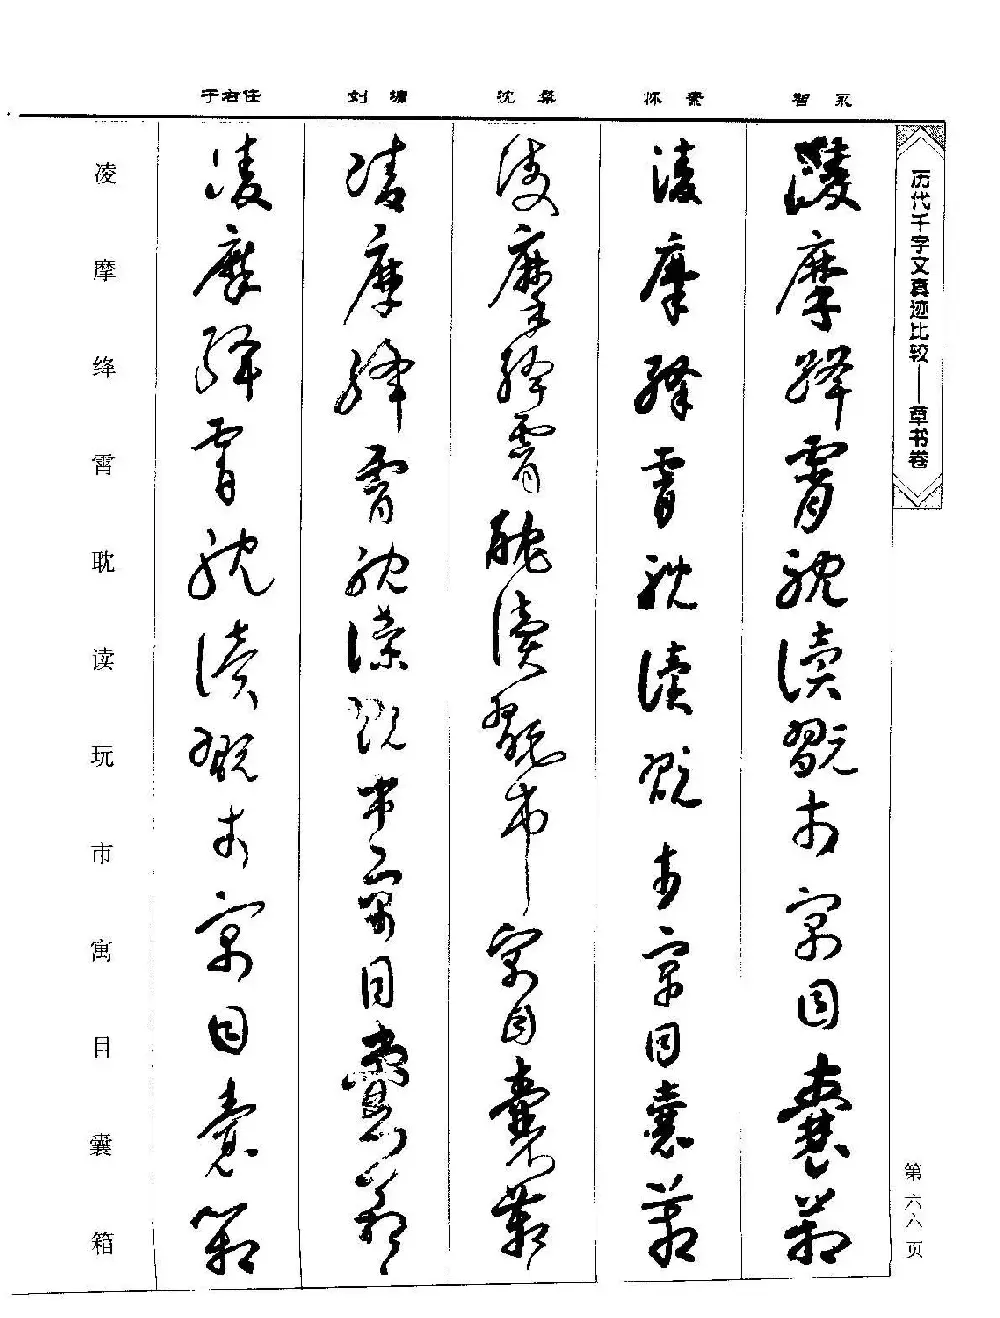 历代千字文真迹比较——草书卷
第六六页
智永
凌摩絳霄耽讀翫市寓目囊箱
怀素
凌摩絳霄耽讀翫市寓目囊箱
沈粲
凌摩絳霄耽讀翫市寓目囊箱
刘墉
凌摩絳霄耽讀翫市寓目囊箱
于右任
凌摩絳霄耽讀翫市寓目囊箱
凌摩绛霄耽读玩市寓目囊箱